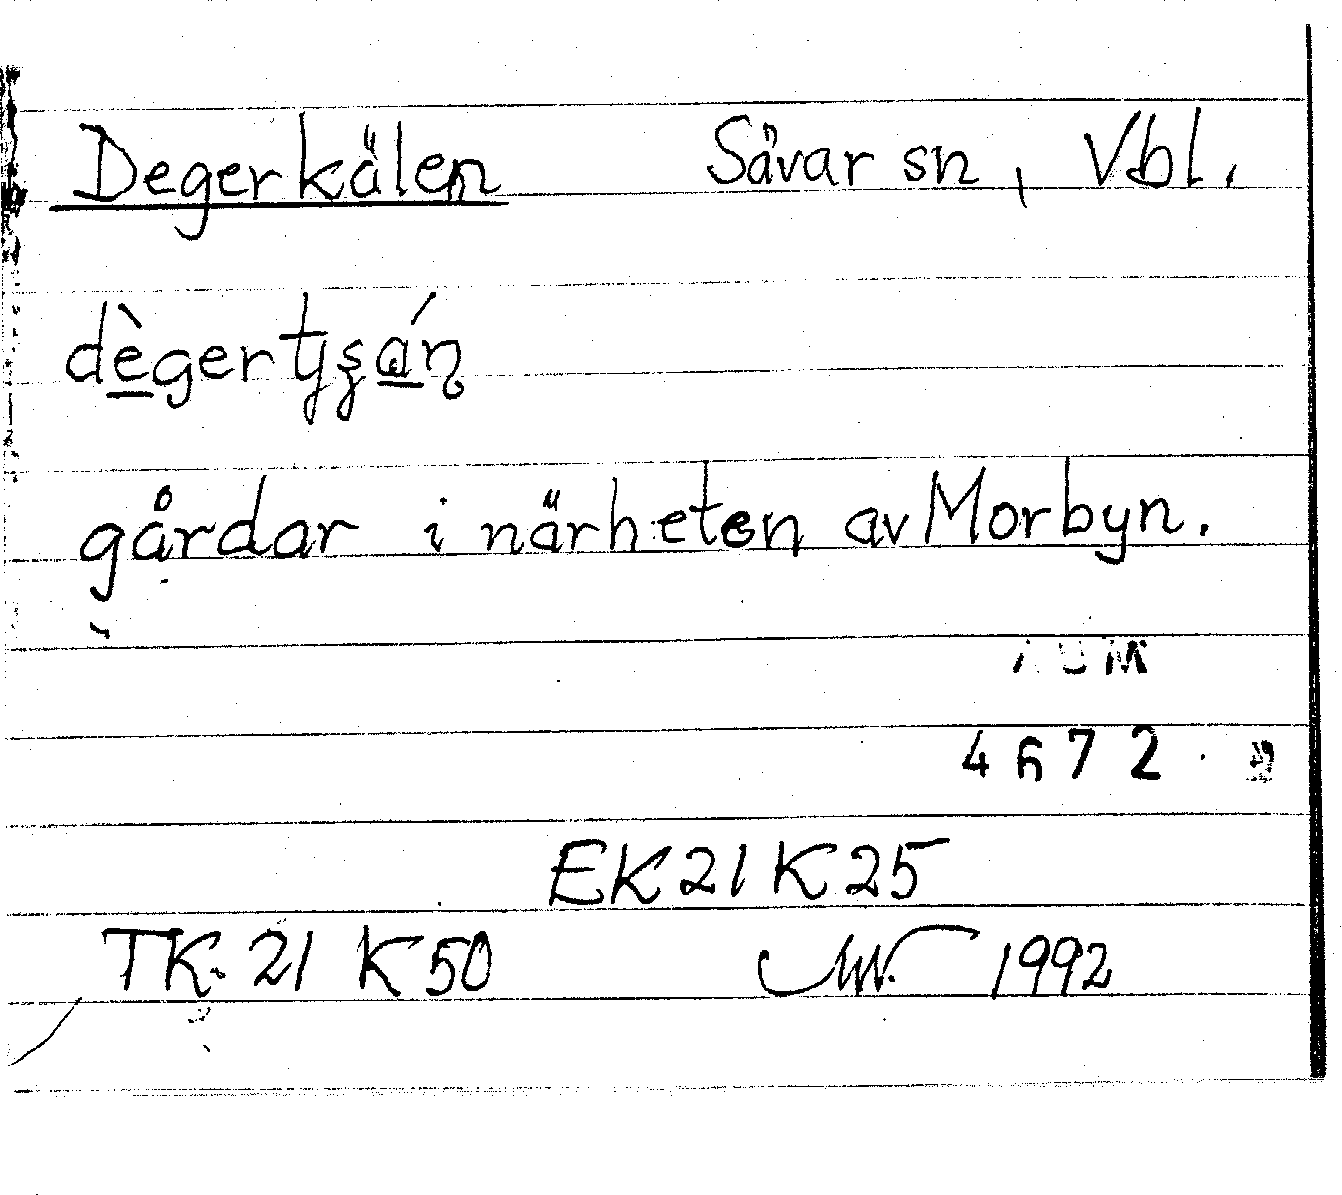 Degerkälen Sävar sn, Vbl.
gårdar i närheten av Morbyn.
4672
EK 21 K 25
TK. 21 K 50 1992